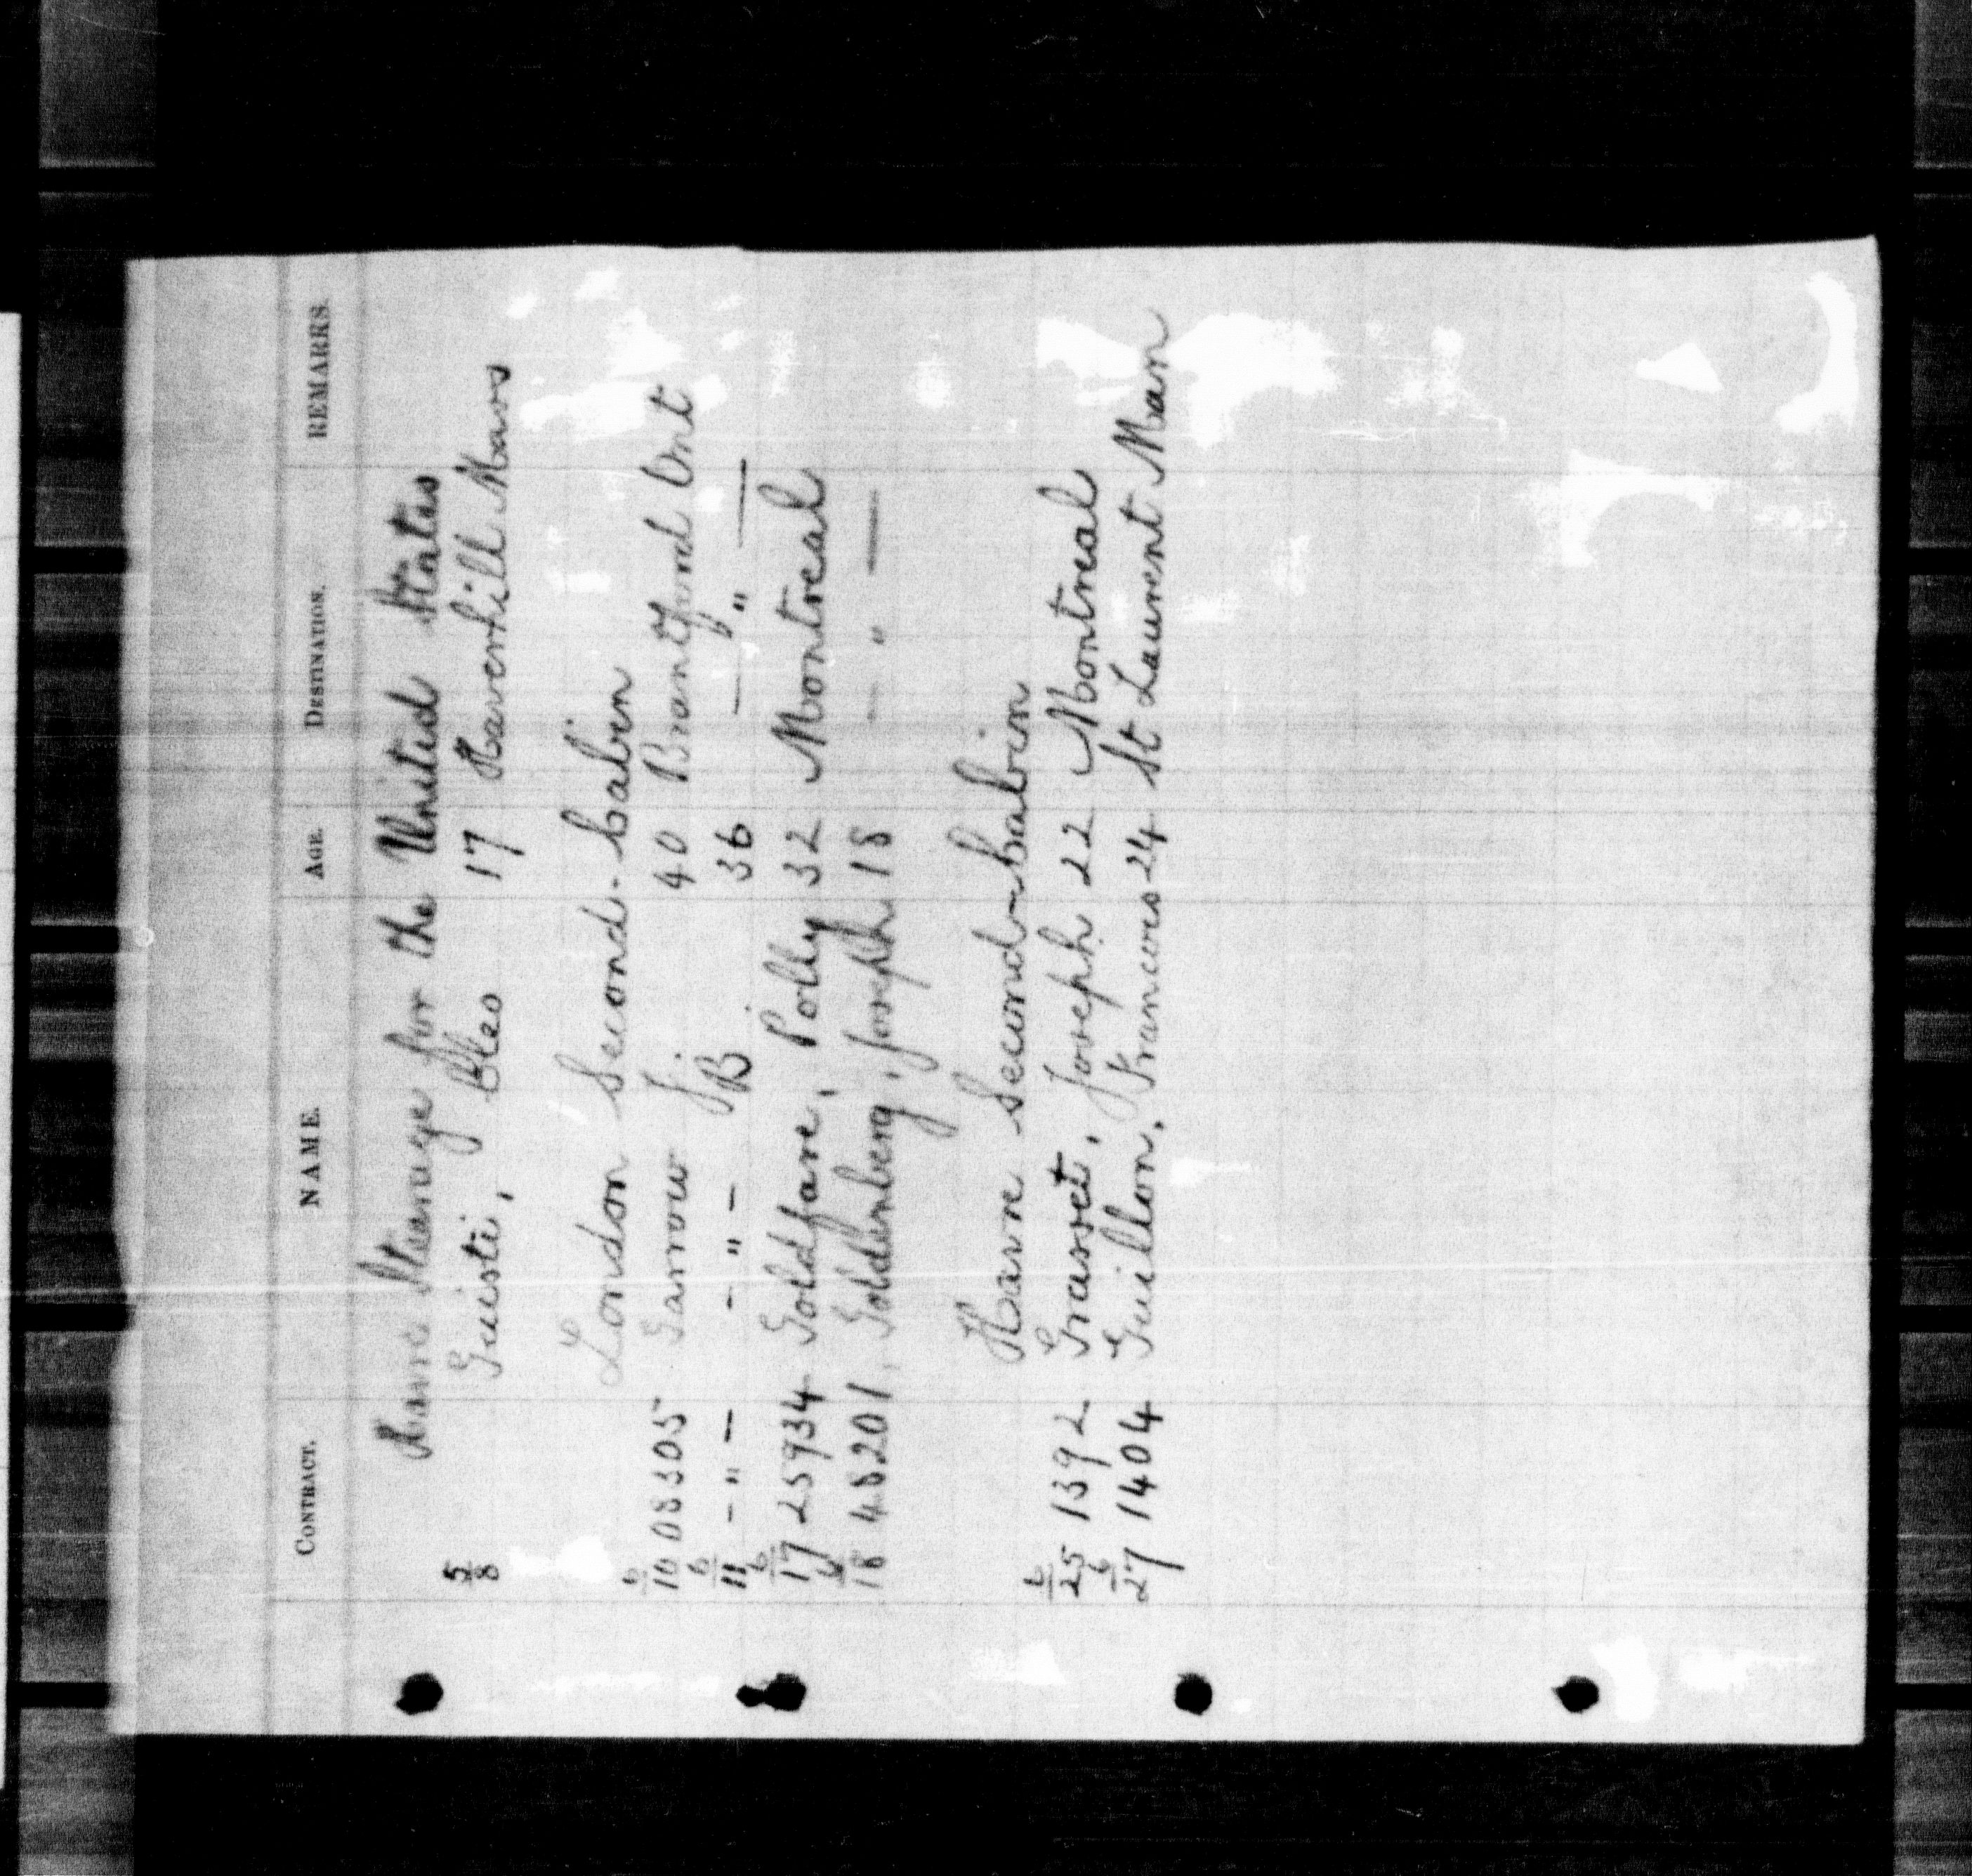 CONTRACT. NAME. AGE. DESTINATION. REMARKS.
Havre Steerage for the United States
5/8 Guisti, Cleo 17 Haverhill Mass
London Second-Cabin
6/10 08305 Garrow J. 40 Brantford Ont
6/11 - " - - " - B 36 — " —
6/17 25934 Goldfare, Polly 32 Montreal
6/18 48201 Goldenberg, Joseph 18 — " —
Havre Second-Cabin
6/25 1392 Grasset, Joseph 22 Montreal
6/27 1404 Guillon, Francois 24 St Laurent Man